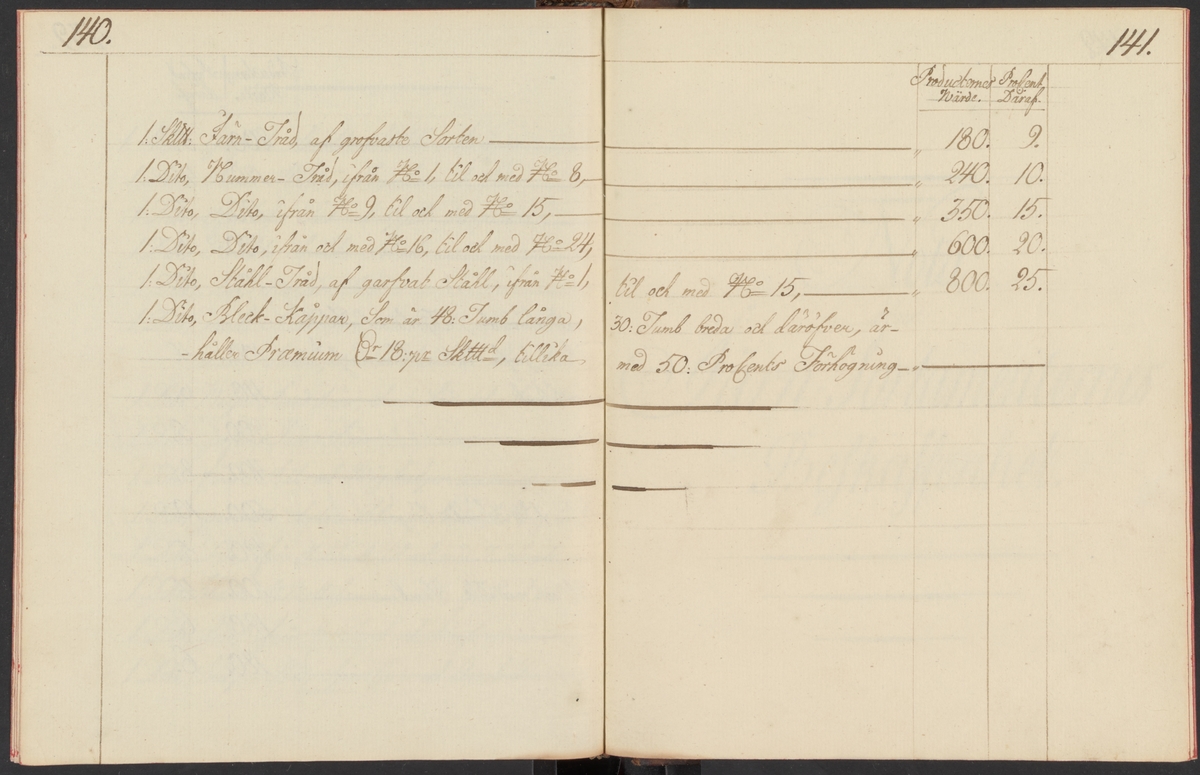 140.
141.
Producternes Wärde. ProCent, Däraf.
1. Sklttt: Järn-Tråd, af grofvaste Sorten „ 180. 9.
1. Dito, Nummer-Tråd, ifrån No 1, til och med No 8, „ 240. 10.
1: Dito, Dito, ifrån No 9, til och med No 15, „ 350. 15.
1: Dito, Dito, ifrån och med No 16, til och med No 24, „ 600. 20.
1: Dito, Ståhl-Tråd, af garfvat Ståhl, ifrån No 1, til och med No 15, „ 800. 25.
1: Dito, Bleck-Kappar, Som är 48: Tumb långa, 30: Tumb breda och däröfver, är-
-håller Præmium Dr 18: pr Skttd, tillika med 50: ProCents Förhögning „